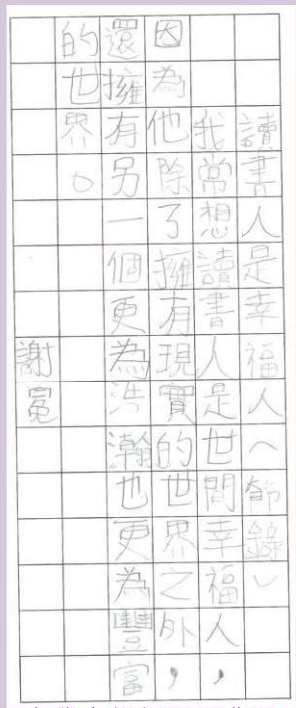 讀書人是幸福人（節錄）
我常想讀書人是世間幸福人，
因為他除了擁有現實的世界之外，
還擁有另一個更為浩瀚也更為豐富
的世界。
謝冕